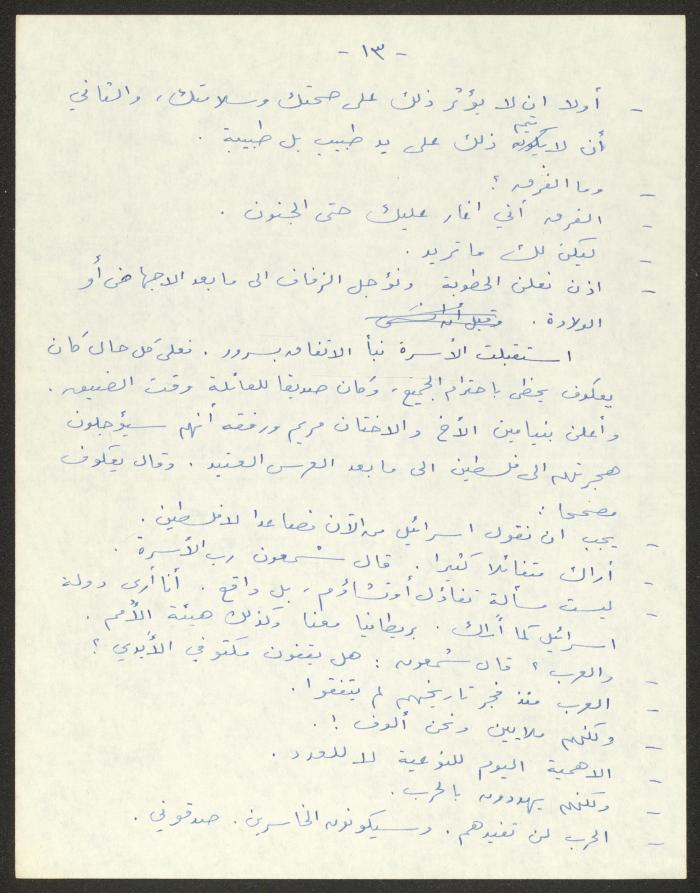 - ١٣ -
- أولا ان لا يؤثر ذلك على صحتك وسلامتك، والثاني
أن لا يتم ذلك على يد طبيب بل طبيبة .
- وما الفرق ؟
- الفرق أني اغار عليك حتى الجنون .
- ليكن لك ما تريد .
- اذن نعلن الخطوبة ونؤجل الزفاف الى ما بعد الاجهاض أو
الولادة .
استقبلت الأسرة نبأ الاتفاق بسرور . فعلى كل حال كان
يعكوف يحظى باحترام الجميع، وكان صديقا للعائلة وقت الضيق .
وأعلن بنيامين الأخ والاختان مريم ورفقه أنهم سيؤجلون
هجرتهم الى فلسطين الى ما بعد العرس العتيد . وقال يعكوف
مصححا :
- يجب ان نقول اسرائيل من الآن فصاعدا لا فلسطين .
- أراك متفائلا كثيرا . قال شمعون رب الأسرة .
- ليست مسألة تفاؤل أو تشاؤم، بل واقع . أنا أرى دولة
اسرائيل كما أراك . بريطانيا معنا وكذلك هيئة الأمم .
- والعرب ؟ قال شمعون : هل يقفون مكتوفي الأيدي ؟
- العرب منذ فجر تاريخهم لم يتفقوا .
- ولكنهم ملايين ونحن ألوف ! .
- الاهمية اليوم للنوعية لا للعدد .
- ولكنهم يهددون بالحرب .
- الحرب لن تفيدهم . وسيكونون الخاسرين . صدقوني .